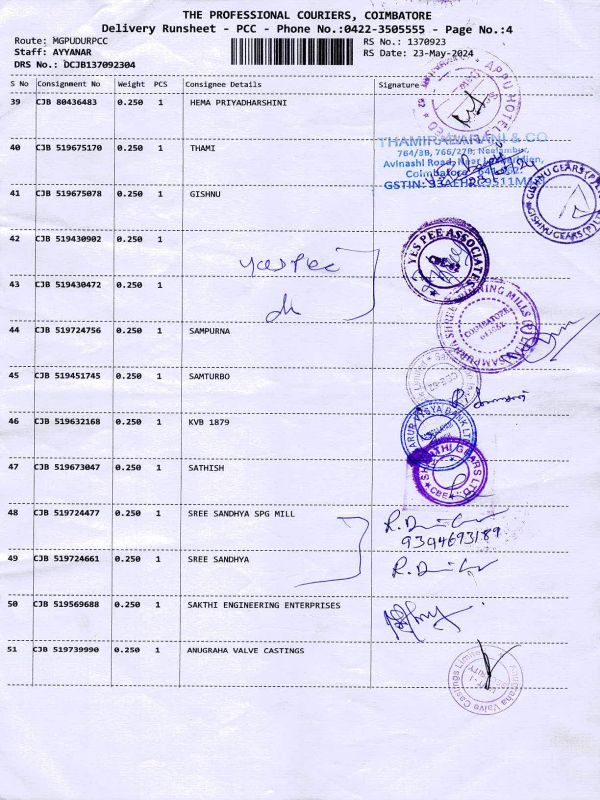 THE PROFESSIONAL COURIERS, COIMBATORE
Delivery Runsheet - PCC - Phone No.:0422-3505555 - Page No.:4
Route: MGPUDURPCC
RS No.: 1370923
Staff: AYYANAR
RS Date: 23-May-2024
DRS No.: DCJB137092304
S No Consignment No Weight PCS Consignee Details Signature
39 CJB 80436483 0.250 1 HEMA PRIYADHARSHINI
APPU HOTEL
40 CJB 519675170 0.250 1 THAMI
THAMIRAVARANI & CO
764/3B, 766/27B, Neelambur,
Avinashi Road,
Coimbatore
GSTIN:
41 CJB 519675078 0.250 1 GISHNU
GISHNU GEARS
42 CJB 519430902 0.250 1
yes Pee
YES PEE ASSOCIATES
CBE-62
43 CJB 519430472 0.250 1
44 CJB 519724756 0.250 1 SAMPURNA
COIMBATORE
45 CJB 519451745 0.250 1 SAMTURBO
46 CJB 519632168 0.250 1 KVB 1879
KARUR VYSYA BANK LTD
47 CJB 519673047 0.250 1 SATHISH
GEARS LTD
48 CJB 519724477 0.250 1 SREE SANDHYA SPG MILL
9394693189
49 CJB 519724661 0.250 1 SREE SANDHYA
50 CJB 519569688 0.250 1 SAKTHI ENGINEERING ENTERPRISES
51 CJB 519739990 0.250 1 ANUGRAHA VALVE CASTINGS
Anugraha Valve Castings Limited